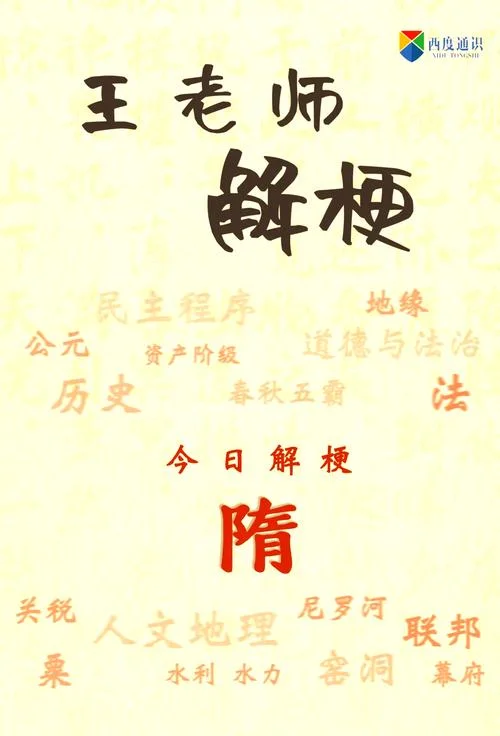 西度通识
XIDU TONGSHI
王老师
解梗
民主程序 地缘
公元 资产阶级 道德与法治
历史 春秋五霸 法
今日解梗
隋
关税 人文地理 尼罗河 联邦
粟 水利 水力 窑洞 幕府